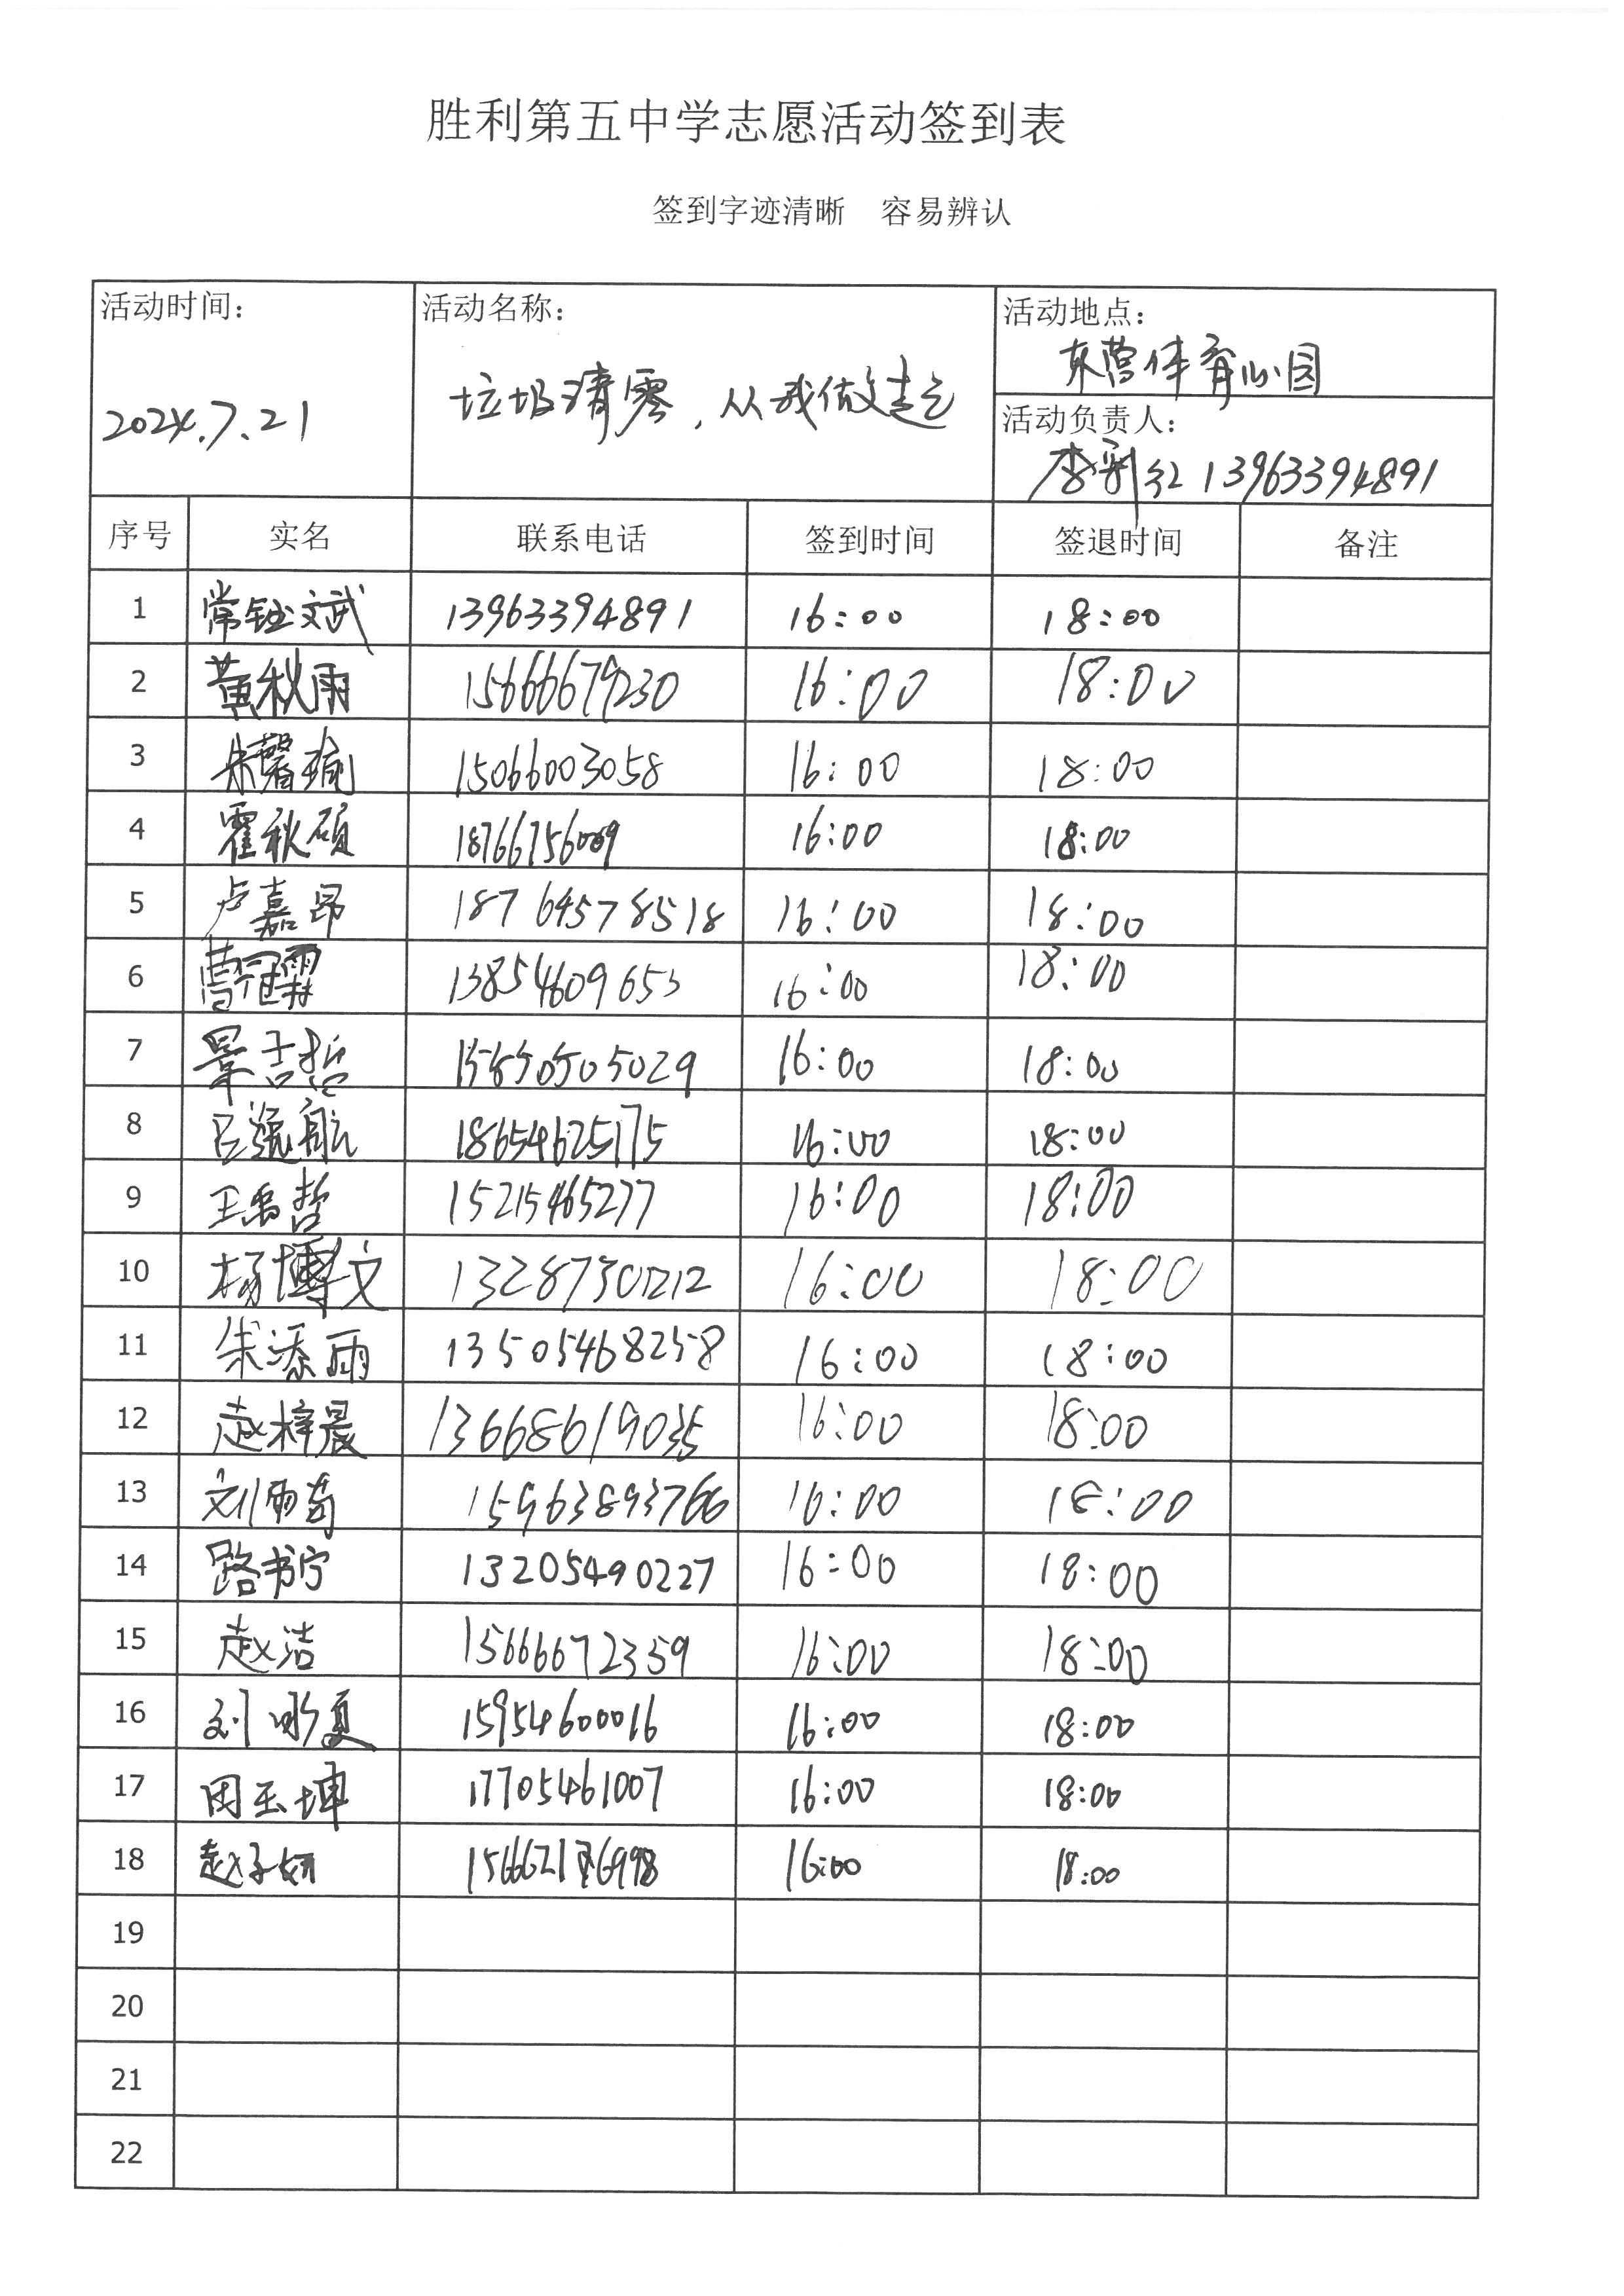 胜利第五中学志愿活动签到表
签到字迹清晰 容易辨认
活动时间： 活动名称： 活动地点：
东营体育公园
2024.7.21 垃圾清零，从我做起
活动负责人：
李彩红 13963394891
序号 实名 联系电话 签到时间 签退时间 备注
1 常钰文武 13963394891 16:00 18:00
2 黄秋雨 15666679230 16:00 18:00
3 朱馨瑜 15066003058 16:00 18:00
4 霍秋硕 18766756009 16:00 18:00
5 卢嘉昂 18764578518 16:00 18:00
6 曹冠霖 13854609653 16:00 18:00
7 景吉哲 15550505029 16:00 18:00
8 吕 航 18654625175 16:00 18:00
9 王禹哲 15215465277 16:00 18:00
10 杨博文 13287301212 16:00 18:00
11 朱添雨 13505468258 16:00 18:00
12 赵梓晨 13668619035 16:00 18:00
13 刘雨奇 15963893766 16:00 18:00
14 路书宁 13205490227 16:00 18:00
15 赵洁 15666672359 16:00 18:00
16 刘 夏 15954600016 16:00 18:00
17 周玉坤 17705461007 16:00 18:00
18 赵子妍 16:00 18:00
19
20
21
22